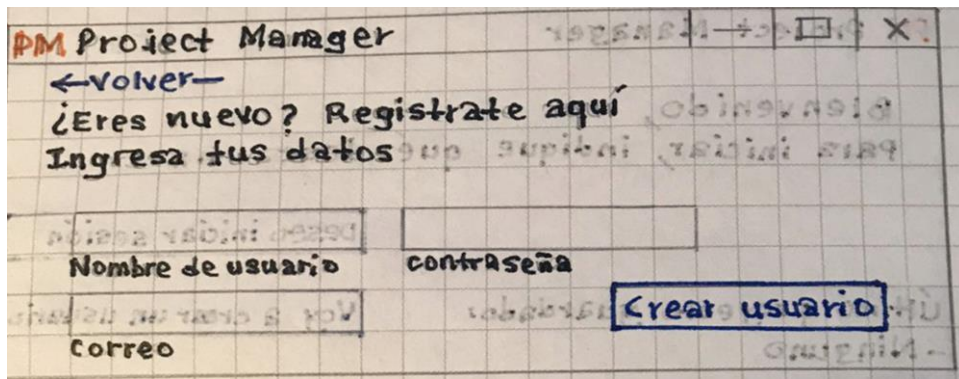 PM Project Manager — □ X
←Volver—
¿Eres nuevo? Registrate aquí
Ingresa tus datos
Nombre de usuario contraseña
Crear usuario
correo